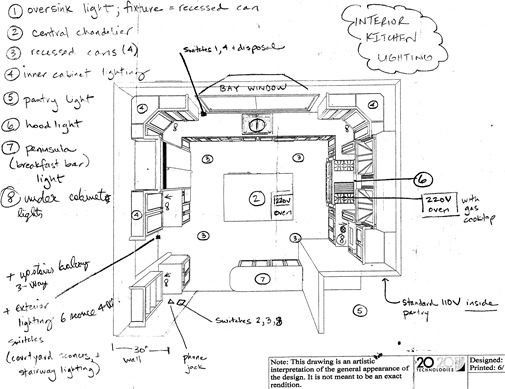 ① oversink light; fixture = recessed can
② central chandelier
③ recessed cans (4)
④ inner cabinet lighting
⑤ pantry light
⑥ hood light
⑦ peninsula
(breakfast bar)
light
⑧ under cabinet
lights
INTERIOR
KITCHEN
LIGHTING
Switches 1, 4 + disposal
BAY WINDOW
④
④
8
8
①
③
③
②
220V
oven
⑥
220V
oven
with
gas
cooktop
④
8
8
③
③
⑦
⑤
8
+ upstairs balcony
3-way
+ exterior
lighting
switches
(courtyard sconces, +
stairway lighting)
6 sconce
30"
wall
phone
jack
Switches 2, 3, 8
standard 110V inside
pantry
Note: This drawing is an artistic
interpretation of the general appearance of
the design. It is not meant to be an exact
rendition.
20 20
TECHNOLOGIES
Designed:
Printed: 6/